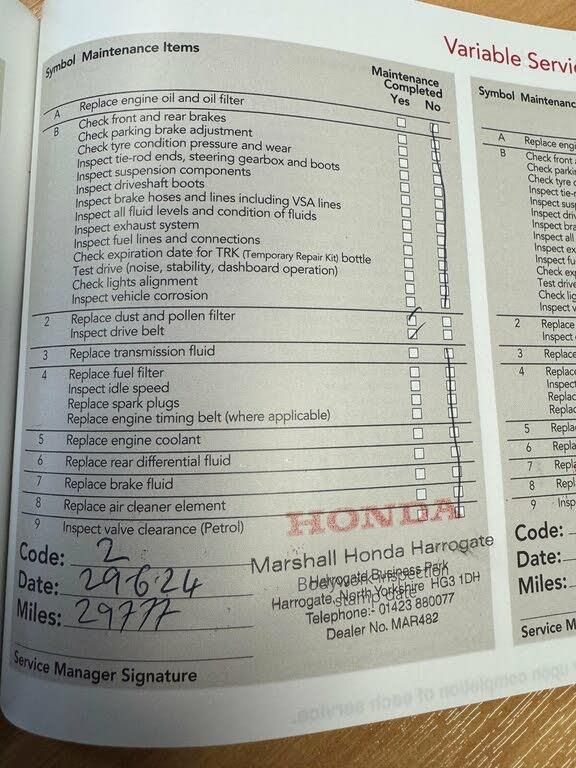 Variable Servi
Symbol Maintenance Items
Maintenance
Completed
Yes No
A Replace engine oil and oil filter
B Check front and rear brakes
Check parking brake adjustment
Check tyre condition pressure and wear
Inspect tie-rod ends, steering gearbox and boots
Inspect suspension components
Inspect driveshaft boots
Inspect brake hoses and lines including VSA lines
Inspect all fluid levels and condition of fluids
Inspect exhaust system
Inspect fuel lines and connections
Check expiration date for TRK (Temporary Repair Kit) bottle
Test drive (noise, stability, dashboard operation)
Check lights alignment
Inspect vehicle corrosion
2 Replace dust and pollen filter
Inspect drive belt
3 Replace transmission fluid
4 Replace fuel filter
Inspect idle speed
Replace spark plugs
Replace engine timing belt (where applicable)
5 Replace engine coolant
6 Replace rear differential fluid
7 Replace brake fluid
8 Replace air cleaner element
9 Inspect valve clearance (Petrol)
HONDA
Marshall Honda Harrogate
Harrogate Business Park
Bodywork Inspection
Harrogate, North Yorkshire HG3 1DH
stamp/date
Telephone:- 01423 880077
Dealer No. MAR482
Code: 2
Date: 29 6 24
Miles: 29777
Service Manager Signature
Symbol Maintenanc
A Replace engi
B Check front
Check parki
Check tyre c
Inspect tie-r
Inspect sus
Inspect driv
Inspect bra
Inspect all
Inspect ex
Inspect fu
Check exp
Test drive
Check lig
Inspect v
2 Replace
Inspect
3 Replac
4 Replace
Inspect
Replac
Replac
5 Repla
6 Repla
7 Repla
8 Repl
9 Insp
Code:
Date:
Miles:
Service M
upon completion of each service.